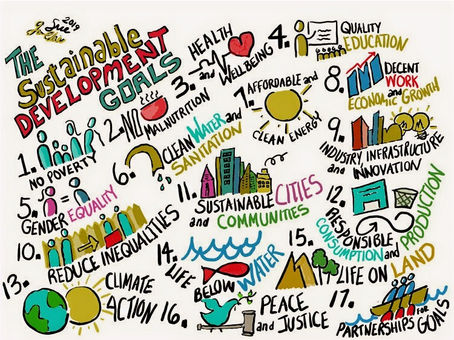 2019
THE
Sustainable
DEVELOPMENT
GOALS
1.
NO POVERTY
2. NO
MALNUTRITION
3.
HEALTH
and
WELLBEING
4.
QUALITY
EDUCATION
5.
GENDER EQUALITY
6.
CLEAN WATER and
SANITATION
7.
AFFORDABLE and
CLEAN ENERGY
8.
DECENT
WORK
and
ECONOMIC GROWTH
9.
INDUSTRY, INFRASTRUCTURE
and
INNOVATION
10.
REDUCE INEQUALITIES
11.
SUSTAINABLE CITIES
and
COMMUNITIES
12.
RESPONSIBLE
CONSUMPTION and
PRODUCTION
13.
CLIMATE
ACTION
14.
LIFE
BELOW WATER
15.
LIFE ON LAND
16.
PEACE
and JUSTICE
17.
PARTNERSHIPS FOR
GOALS